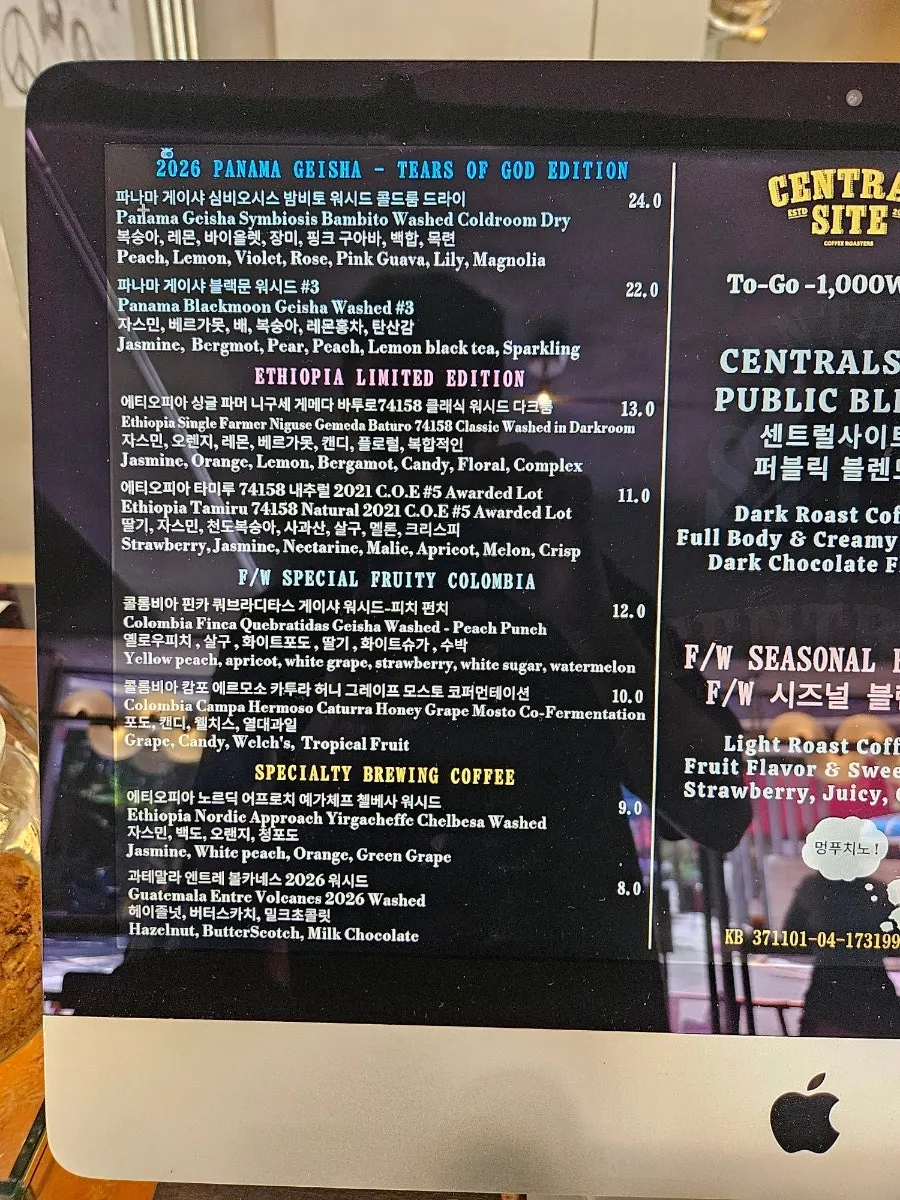 2026 PANAMA GEISHA - TEARS OF GOD EDITION
파나마 게이샤 심비오시스 밤비토 워시드 콜드룸 드라이 24.0
Panama Geisha Symbiosis Bambito Washed Coldroom Dry
복숭아, 레몬, 바이올렛, 장미, 핑크 구아바, 백합, 목련
Peach, Lemon, Violet, Rose, Pink Guava, Lily, Magnolia
파나마 게이샤 블랙문 워시드 #3 22.0
Panama Blackmoon Geisha Washed #3
자스민, 베르가못, 배, 복숭아, 레몬홍차, 탄산감
Jasmine, Bergmot, Pear, Peach, Lemon black tea, Sparkling
ETHIOPIA LIMITED EDITION
에티오피아 싱글 파머 니구세 게메다 바투로74158 클래식 워시드 다크룸 13.0
Ethiopia Single Farmer Niguse Gemeda Baturo 74158 Classic Washed in Darkroom
자스민, 오렌지, 레몬, 베르가못, 캔디, 플로럴, 복합적인
Jasmine, Orange, Lemon, Bergamot, Candy, Floral, Complex
에티오피아 타미루 74158 내추럴 2021 C.O.E #5 Awarded Lot 11.0
Ethiopia Tamiru 74158 Natural 2021 C.O.E #5 Awarded Lot
딸기, 자스민, 천도복숭아, 사과산, 살구, 멜론, 크리스피
Strawberry, Jasmine, Nectarine, Malic, Apricot, Melon, Crisp
F/W SPECIAL FRUITY COLOMBIA
콜롬비아 핀카 쿼브라디타스 게이샤 워시드-피치 펀치 12.0
Colombia Finca Quebratidas Geisha Washed - Peach Punch
옐로우피치 , 살구 , 화이트포도 , 딸기 , 화이트슈가 , 수박
Yellow peach, apricot, white grape, strawberry, white sugar, watermelon
콜롬비아 캄포 에르모소 카투라 허니 그레이프 모스토 코퍼먼테이션 10.0
Colombia Campa Hermoso Caturra Honey Grape Mosto Co-Fermentation
포도, 캔디, 웰치스, 열대과일
Grape, Candy, Welch's, Tropical Fruit
SPECIALTY BREWING COFFEE
에티오피아 노르딕 어프로치 예가체프 첼베사 워시드 9.0
Ethiopia Nordic Approach Yirgacheffe Chelbesa Washed
자스민, 백도, 오랜지, 청포도
Jasmine, White peach, Orange, Green Grape
과테말라 엔트레 볼카네스 2026 워시드 8.0
Guatemala Entre Volcanes 2026 Washed
헤이즐넛, 버터스카치, 밀크초콜릿
Hazelnut, ButterScotch, Milk Chocolate
CENTRA
ESTD SITE 20
COFFEE ROASTERS
To-Go -1,000W
CENTRALS
PUBLIC BL
센트럴사이트
퍼블릭 블렌드
Dark Roast Cof
Full Body & Creamy
Dark Chocolate F
F/W SEASONAL
F/W 시즈널 블렌
Light Roast Coff
Fruit Flavor & Swee
Strawberry, Juicy,
멍푸치노 !
KB 371101-04-173199